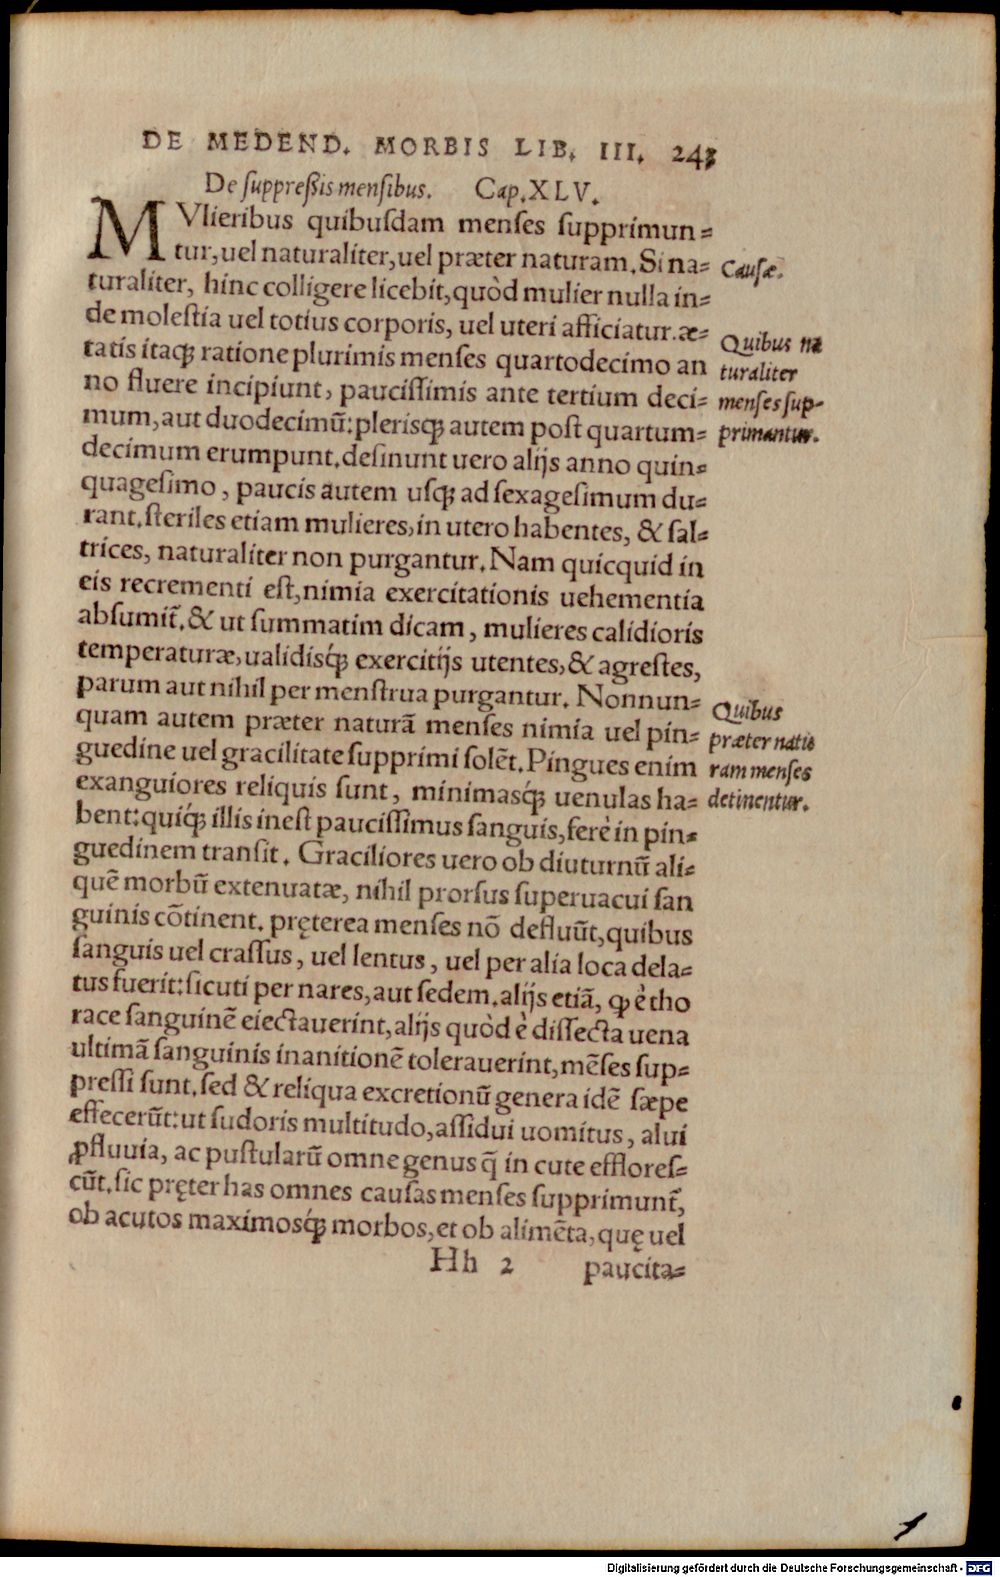 DE MEDEND. MORBIS LIB. III. 243
De suppreßis mensibus. Cap. XLV.
MVlieribus quibusdam menses supprimun=
tur, uel naturaliter, uel præter naturam. Si na=
Causæ.
turaliter, hinc colligere licebit, quòd mulier nulla in=
de molestia uel totius corporis, uel uteri afficiatur. æ=
tatis itaqꝫ ratione plurimis menses quartodecimo an
no fluere incipiunt, paucissimis ante tertium deci=
mum, aut duodecimũ: plerisqꝫ autem post quartum=
Quibus na
turaliter
menses sup=
primantur.
decimum erumpunt. desinunt uero alijs anno quin=
quagesimo, paucis autem usqꝫ ad sexagesimum du=
rant. steriles etiam mulieres, in utero habentes, & sal=
trices, naturaliter non purgantur. Nam quicquid in
eis recrementi est, nimia exercitationis uehementia
absumit̃. & ut summatim dicam, mulieres calidioris
temperaturæ, ualidisq́ꝫ exercitijs utentes, & agrestes,
parum aut nihil per menstrua purgantur. Nonnun=
quam autem præter naturã menses nimia uel pin=
guedine uel gracilitate supprimi solẽt. Pingues enim
exanguiores reliquis sunt, minimasq́ꝫ uenulas ha=
Quibus
præter natu
ram menses
detinentur.
bent: quiq́ꝫ illis inest paucissimus sanguis, ferè in pin=
guedinem transit. Graciliores uero ob diuturnũ ali=
quẽ morbũ extenuatæ, nihil prorsus superuacui san
guinis cõtinent. pręterea menses nõ defluũt, quibus
sanguis uel crassus, uel lentus, uel per alia loca dela=
tus fuerit: sicuti per nares, aut sedem. alijs etiã, ꝙ è tho
race sanguinẽ eiectauerint, alijs quòd è dissecta uena
ultimã sanguinis inanitionẽ tolerauerint, mẽses sup=
pressi sunt. sed & reliqua excretionũ genera idẽ sæpe
effecerũt: ut sudoris multitudo, assidui uomitus, alui
ꝓfluuia, ac pustularũ omne genus q̃ in cute efflores=
cũt. sic pręter has omnes causas menses supprimunt̃,
ob acutos maximosq́ꝫ morbos, et ob alimẽta, quę uel
Hh 2 paucita=
Digitalisierung gefördert durch die Deutsche Forschungsgemeinschaft - DFG